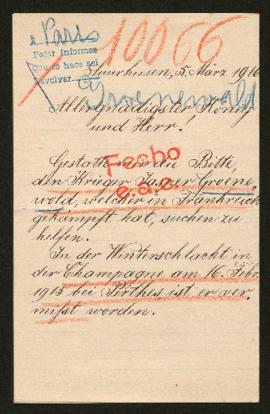 a Paris
10066
Pedir informes
que no hace sei
devolver
Suurhusen, 5. März 1916
Grvenewald
Allergnädigster König
und Herr!
Gestatten die Bitte,
den Krieger Jasper Groene-
wold, welcher in Frankreich
gekämpft hat, suchen zu
helfen.
Fecho
e.a.e.
In der Winterschlacht in
der Champagne am 16. Febr.
1915 bei Perthes ist er ver-
mißt worden.